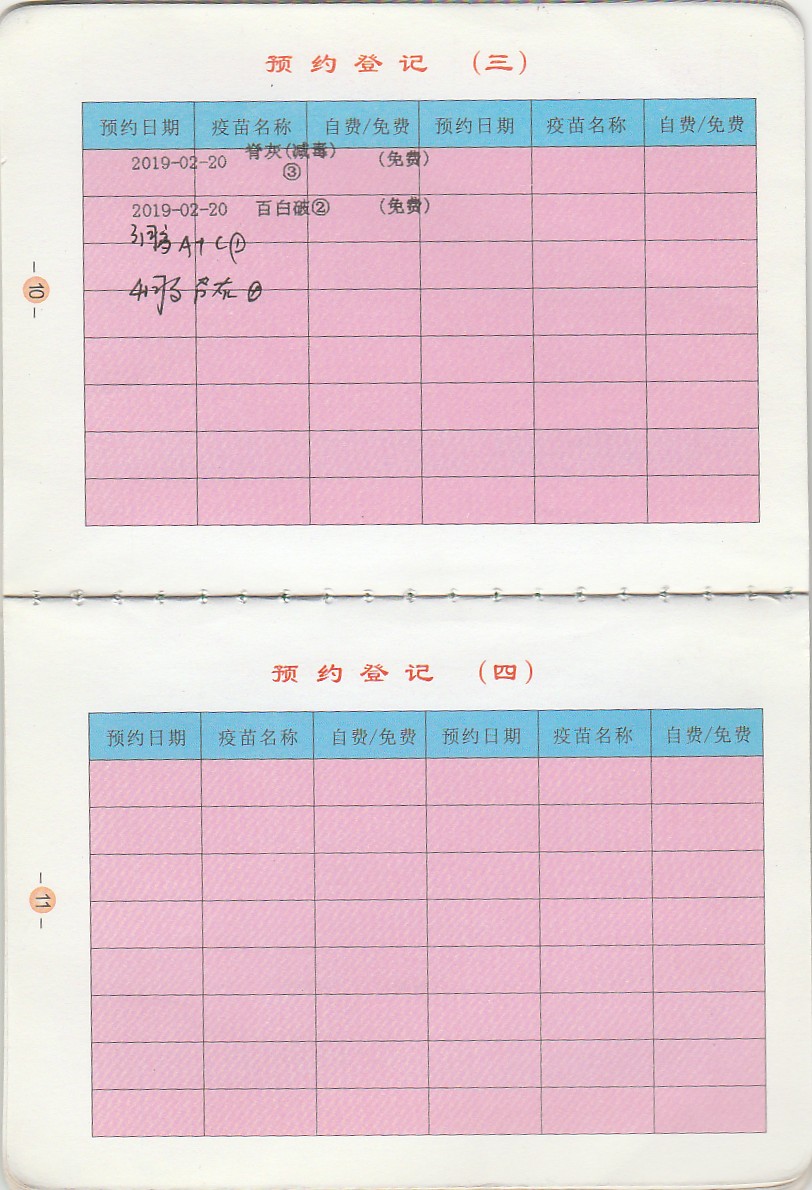 预约登记 (三)
预约日期 疫苗名称 自费/免费 预约日期 疫苗名称 自费/免费
2019-02-20 脊灰(减毒)③ (免费)
2019-02-20 百白破② (免费)
A+C①
-10-
预约登记 (四)
预约日期 疫苗名称 自费/免费 预约日期 疫苗名称 自费/免费
-11-